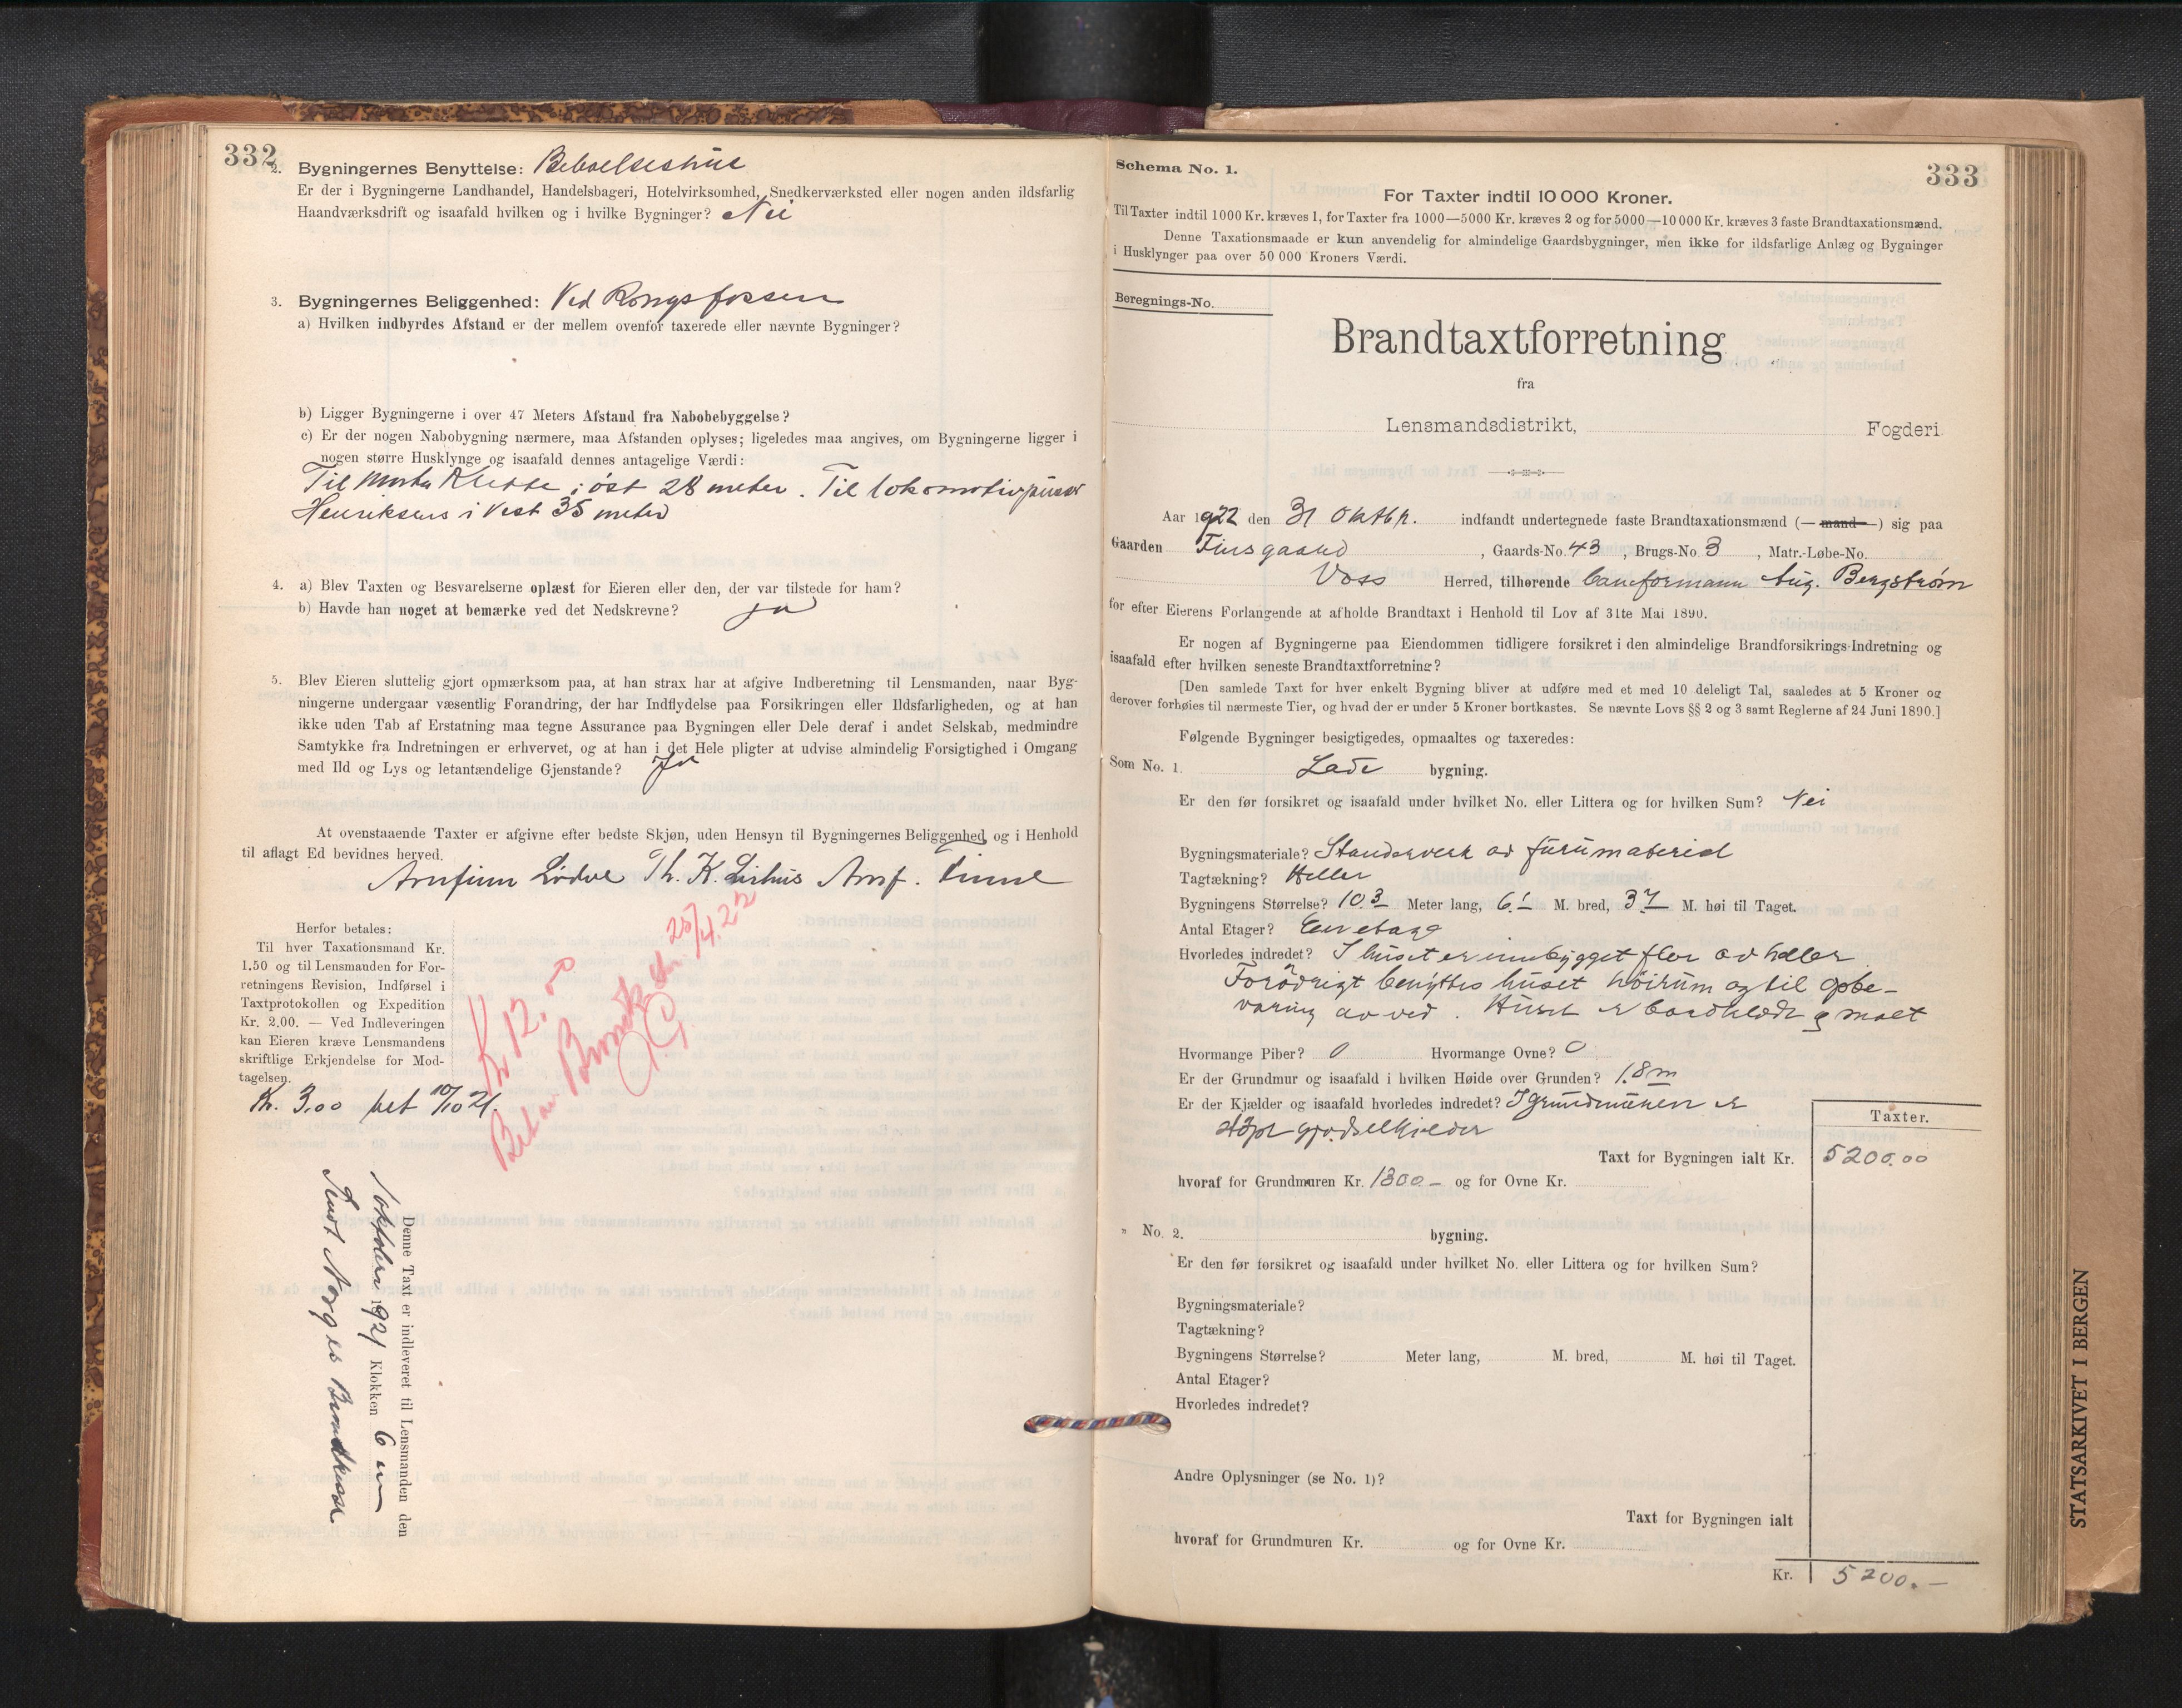 332
2. Bygningernes Benyttelse: Beboelseshus
Er der i Bygningerne Landhandel, Handelsbageri, Hotelvirksomhed, Snedkerværksted eller nogen anden ildsfarlig
Haandværksdrift og isaafald hvilken og i hvilke Bygninger? Nei
3. Bygningernes Beliggenhed: Ved Rongsfossen
a) Hvilken indbyrdes Afstand er der mellem ovenfor taxerede eller nævnte Bygninger?
b) Ligger Bygningerne i over 47 Meters Afstand fra Nabobebyggelse?
c) Er der nogen Nabobygning nærmere, maa Afstanden oplyses; ligeledes maa angives, om Bygningerne ligger i
nogen større Husklynge og isaafald dennes antagelige Værdi:
Til Klette i øst 28 meter. Til lokomotivpusser
Henriksens i Vest 35 meter
4. a) Blev Taxten og Besvarelserne oplæst for Eieren eller den, der var tilstede for ham?
b) Havde han noget at bemærke ved det Nedskrevne? ja
5. Blev Eieren sluttelig gjort opmærksom paa, at han strax har at afgive Indberetning til Lensmanden, naar Byg-
ningerne undergaar væsentlig Forandring, der har Indflydelse paa Forsikringen eller Ildsfarligheden, og at han
ikke uden Tab af Erstatning maa tegne Assurance paa Bygningen eller Dele deraf i andet Selskab, medmindre
Samtykke fra Indretningen er erhvervet, og at han i det Hele pligter at udvise almindelig Forsigtighed i Omgang
med Ild og Lys og letantændelige Gjenstande? Ja
At ovenstaaende Taxter er afgivne efter bedste Skjøn, uden Hensyn til Bygningernes Beliggenhed og i Henhold
til aflagt Ed bevidnes herved.
Arnfinn Th. K. Lirhus Arnf. Finne
Herfor betales:
Til hver Taxationsmand Kr.
1.50 og til Lensmanden for For-
retningens Revision, Indførsel i
Taxtprotokollen og Expedition
Kr. 2.00. — Ved Indleveringen
kan Eieren kræve Lensmandens
skriftlige Erkjendelse for Mod-
tagelsen.
Kr. 3.00 bet 10/10 21.
K 12.
Bet av 25/4.22
Denne Taxt er indleveret til Lensmanden den
oktober 1921 Klokken 6 em
Sendt Norges Brandkasse
Schema No. 1.
333
For Taxter indtil 10 000 Kroner.
Til Taxter indtil 1000 Kr. kræves 1, for Taxter fra 1000—5000 Kr. kræves 2 og for 5000—10 000 Kr. kræves 3 faste Brandtaxationsmænd.
Denne Taxationsmaade er kun anvendelig for almindelige Gaardsbygninger, men ikke for ildsfarlige Anlæg og Bygninger
i Husklynger paa over 50 000 Kroners Værdi.
Beregnings-No.
Brandtaxtforretning
fra
Lensmandsdistrikt, Fogderi.
Aar 1922 den 31 Oktbr. indfandt undertegnede faste Brandtaxationsmænd (— mand —) sig paa
Gaarden Finsgaard, Gaards-No. 43, Brugs-No. 3, Matr.-Løbe-No.
Voss Herred, tilhørende Baneformann Aug. Bergstrøm
for efter Eierens Forlangende at afholde Brandtaxt i Henhold til Lov af 31te Mai 1890.
Er nogen af Bygningerne paa Eiendommen tidligere forsikret i den almindelige Brandforsikrings-Indretning og
isaafald efter hvilken seneste Brandtaxtforretning?
[Den samlede Taxt for hver enkelt Bygning bliver at udføre med et med 10 deleligt Tal, saaledes at 5 Kroner og
derover forhøies til nærmeste Tier, og hvad der er under 5 Kroner bortkastes. Se nævnte Lovs §§ 2 og 3 samt Reglerne af 24 Juni 1890.]
Følgende Bygninger besigtigedes, opmaaltes og taxeredes:
Som No. 1. Lade bygning.
Er den før forsikret og isaafald under hvilket No. eller Littera og for hvilken Sum? Nei
Bygningsmateriale? Standerverk av furumateriel
Tagtækning? Heller
Bygningens Størrelse? 10.3 Meter lang, 6.1 M. bred, 3.7 M. høi til Taget.
Antal Etager? En etage
Hvorledes indredet? I huset er innbygget flor av heller.
Forøvrigt benyttes huset høirum og til opbe-
varing av ved. Huset er bordklædt og malt
Hvormange Piber? 0 Hvormange Ovne? 0
Er der Grundmur og isaafald i hvilken Høide over Grunden? 1.8 m
Er der Kjælder og isaafald hvorledes indredet? I grundmuren er
støpt gjødselkjelder
Taxter.
Taxt for Bygningen ialt Kr. 5200.00
hvoraf for Grundmuren Kr. 1300.— og for Ovne Kr.
" No. 2. bygning.
Er den før forsikret og isaafald under hvilket No. eller Littera og for hvilken Sum?
Bygningsmateriale?
Tagtækning?
Bygningens Størrelse? Meter lang, M. bred, M. høi til Taget.
Antal Etager?
Hvorledes indredet?
Andre Oplysninger (se No. 1)?
Taxt for Bygningen ialt
hvoraf for Grundmuren Kr. og for Ovne Kr.
Kr. 5200.—
STATSARKIVET I BERGEN